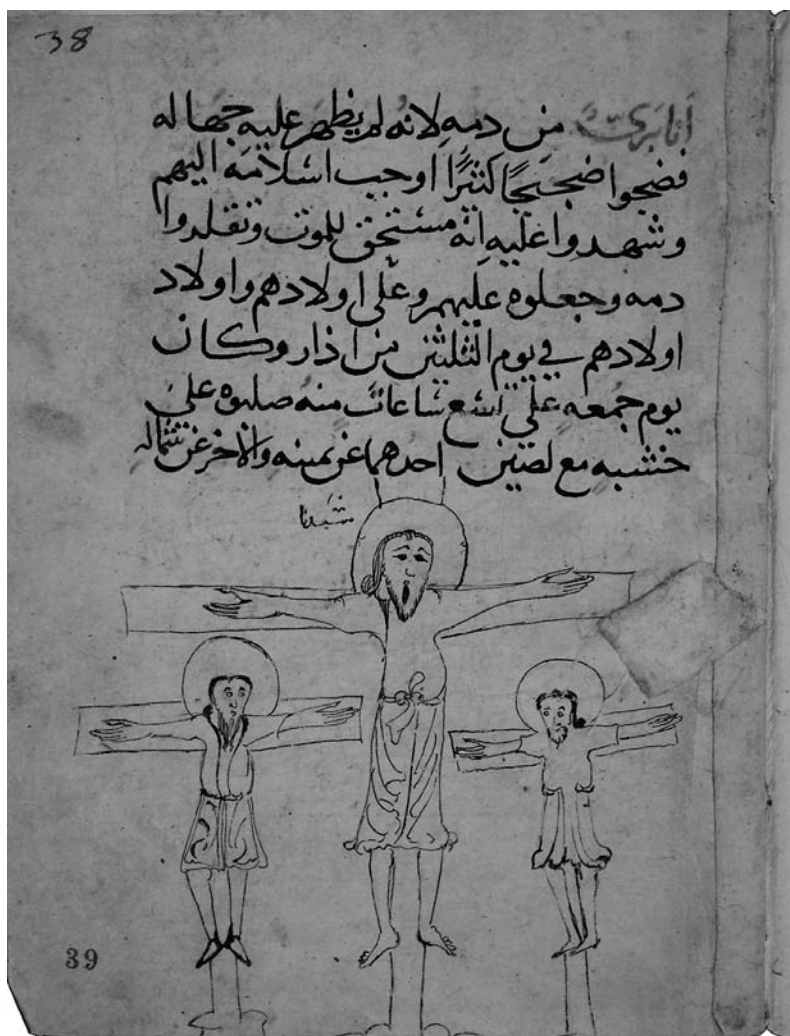 38
انا برىٌ من دمهِ لانهُ لم يظهر عليهِ جهاله
فضجوا ضجيجًا كثيرًا اوجب اسلامه اليهم
وشهدوا عليهِ انه مستحق للموت وتقلدوا
دمه وجعلوه عليهم وعلى اولادهم واولاد
اولادهم في يوم الثلثين من اذار وكان
يوم جمعه على تسع ساعات منهُ صلبوه على
خشبه مع لصين احدهما عن يمينه والاخر عن شماله
39